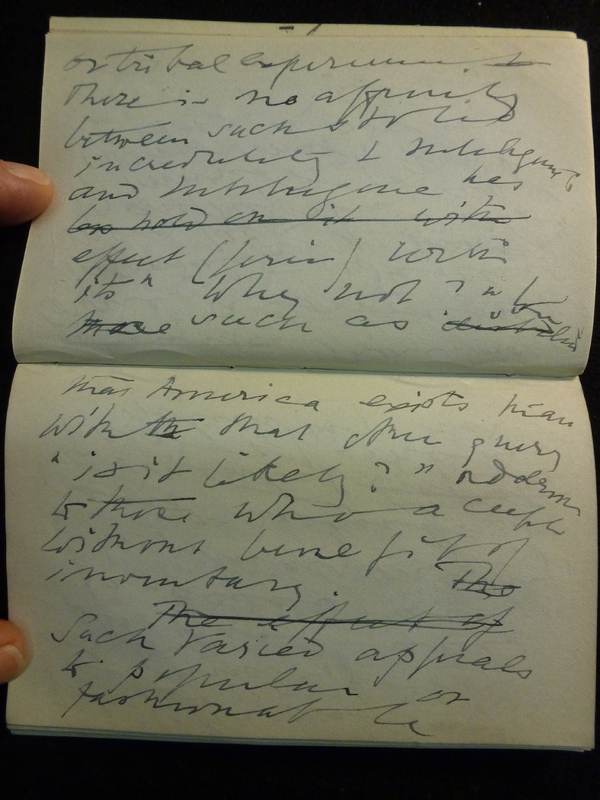 or tribal experience. 
There is no affinity
between such stolid
incredulity & Intelligence
and Intelligence has
no hold on it with
effect (force) with
its "Why not?"
those such as
that America exists than
with the that other query
"is it likely?" addressed
to those who accept
without benefit of
inventory. The
The effect of
such varied appeals
to popular or
fashionable